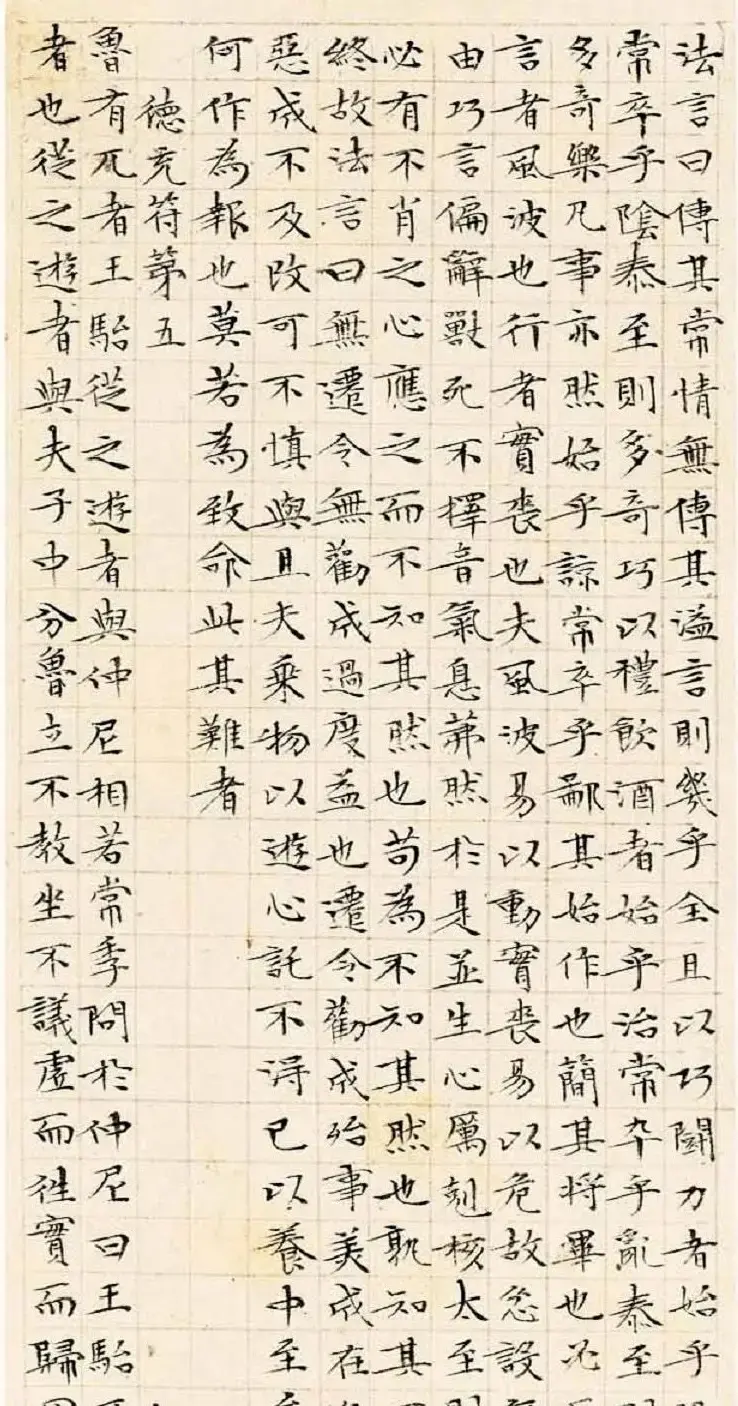 法言曰傳其常情無傳其溢言則幾乎全且以巧鬭力者始乎
常卒乎陰泰至則多奇巧以禮飲酒者始乎治常卒乎亂泰至
多奇樂凡事亦然始乎諒常卒乎鄙其始作也簡其將畢也必
言者風波也行者實喪也夫風波易以動實喪易以危故忿設
由巧言偏辭獸死不擇音氣息茀然於是並生心厲剋核太至
必有不肖之心應之而不知其然也苟為不知其然也孰知其
終故法言曰無遷令無勸成過度益也遷令勸成殆事美成在
惡成不及改可不慎與且夫乘物以遊心託不得已以養中至
何作為報也莫若為致命此其難者
德充符第五
魯有兀者王駘從之遊者與仲尼相若常季問於仲尼曰王駘
者也從之遊者與夫子中分魯立不教坐不議虛而往實而歸